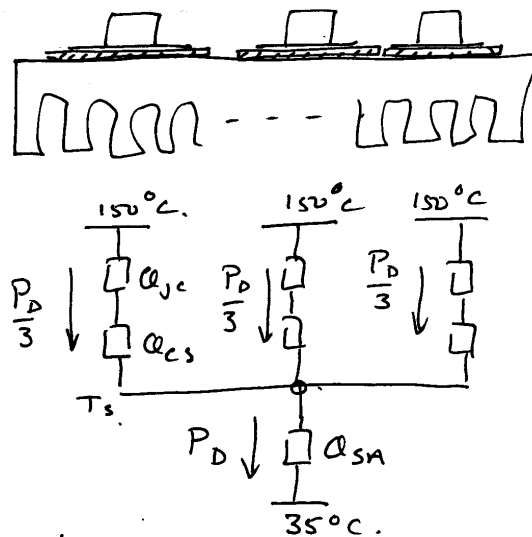 150°C. 150°C 150°C
P_D/3 Q_JC P_D/3 P_D/3
Q_CS
T_S.
P_D Q_SA
35°C.